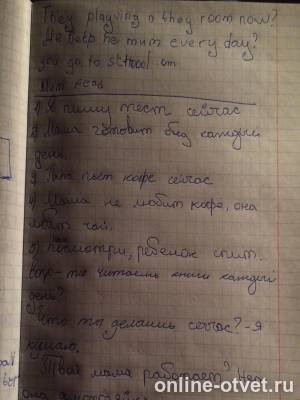 They playving in they room now?
He help he mum every day?
you go to scthool on
Mum read
1) Я пишу тест сейчас
2) Мама готовит каждый
день.
3) Папа пьёт кофе сейчас
4) Мама не любит кофе, она
чай.
5) посмотри, ребенок спит.
ты читаешь книги каждый
день?
Что ты делаешь сейчас? - Я
кушаю.
Твоя мама работает? Нет
она
online-otvet.ru